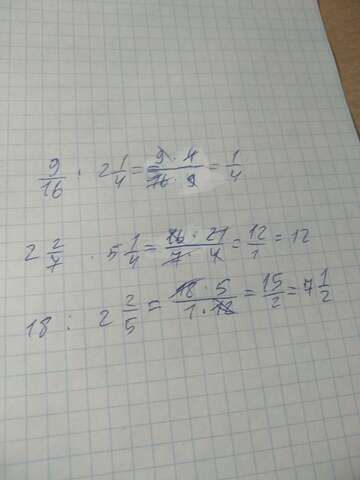 9/16 : 2 1/4 = 9 · 4 / 16 · 9 = 1/4
2 2/7 · 5 1/4 = 16 · 21 / 7 · 4 = 12/1 = 12
18 : 2 2/5 = 18 · 5 / 1 · 12 = 15/2 = 7 1/2